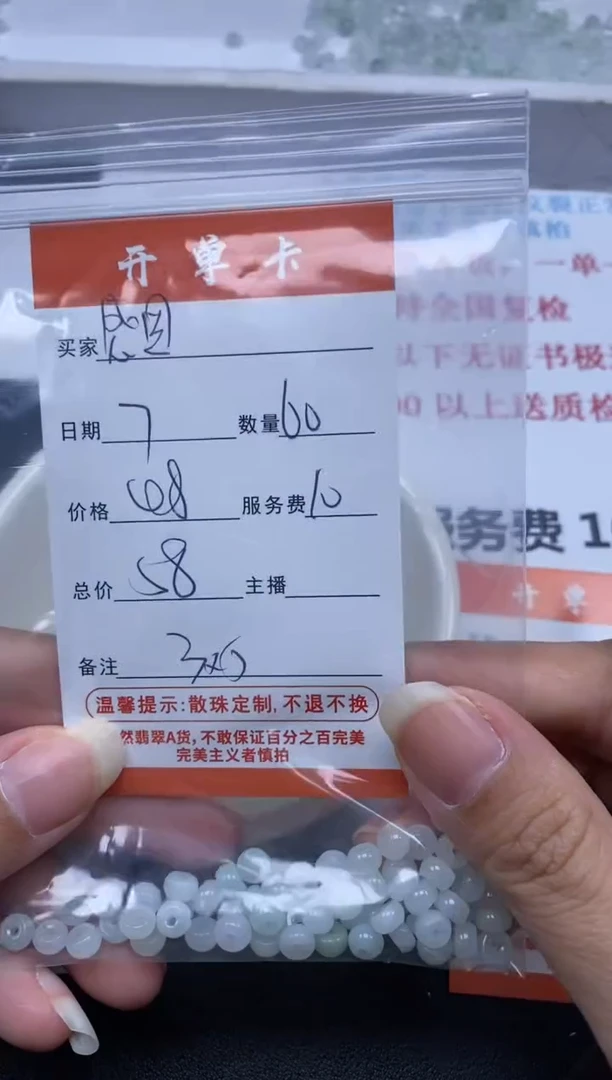 开单卡
买家
日期 7 数量 60
价格 68 服务费 10
总价 58 主播
备注
温馨提示:散珠定制,不退不换
然翡翠A货,不敢保证百分之百完美
完美主义者慎拍
慎拍
一单一
全国复检
以下无证书
00 以上送质检
服务费 1
开单